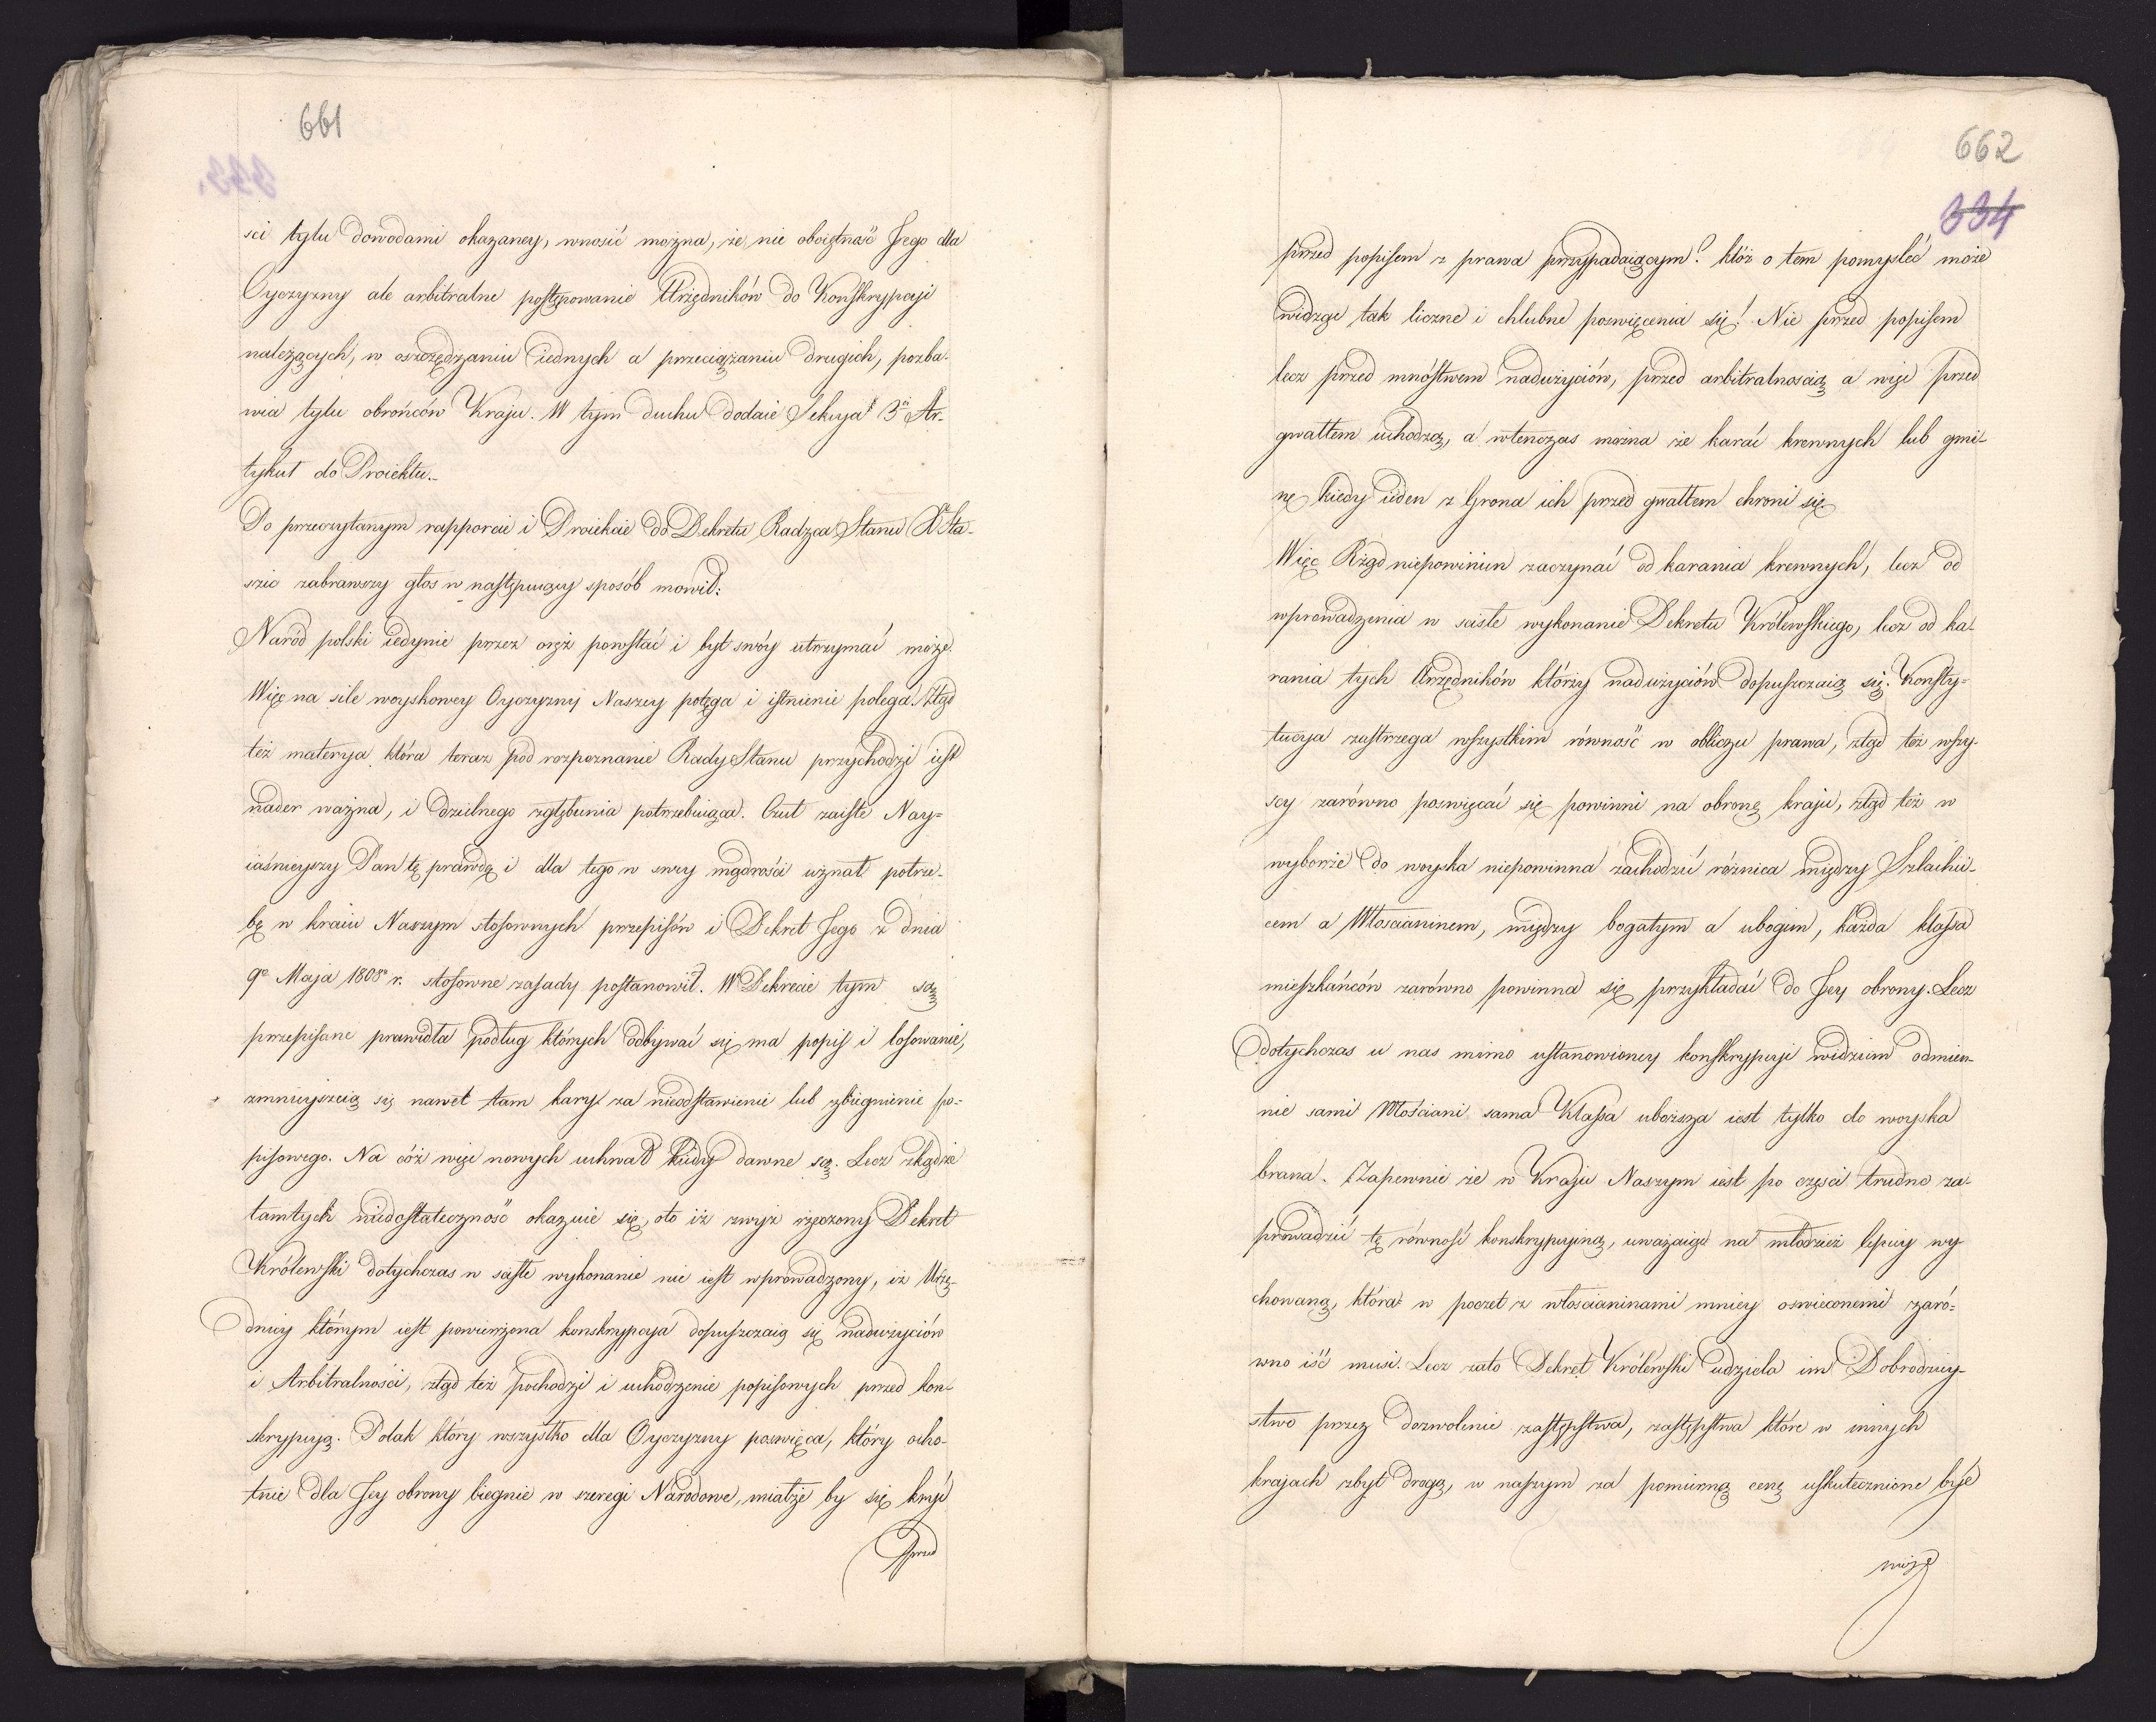 661
sci tylu dowodami okazaney, wnosić można, że nie oboiętność Jego dla
Oyczyzny ale arbitralne postępowanie Urzędników do Konskrypcyi
należących, w oszczędzaniu iednych a przeciążaniu drugich, pozba-
wia tylu obrońców Kraju. W tym duchu dodaie Sekcya 3ci Ar-
tykuł do Proiektu.-
Po przeczytanym rapporcie i Proiekcie do Dekretu Radzca Stanu X. Sta-
szic zabrawszy głos w następuiący sposób mowił:
Naród polski iedynie przez oręż powstać i byt swóy utrzymać może.
Więc na sile woyskowey Oyczyzny Naszey potęga i istnienie polega. Ztąd
też materya która teraz pod rozpoznanie Rady Stanu przychodzi iest
nader ważna, i dzielnego zgłębienia potrzebuiąca. Czuł zaiste Nay-
iaśnieyszy Pan tę prawdę i dla tego w swey mądrości uznał potrze-
bę w kraiu Naszym stosownych przepisów i Dekret Jego z dnia
9go Maja 1808o r. stosowne zasady postanowił. W Dekrecie tym są
przepisane prawidła podług których odbywać się ma popis i losowanie,
zmnieyszcią się nawet tam kary za nieodstawienie lub zbiegnienie po-
pisowego. Na cóż więc nowych uchwał kiedy dawne są. Lecz zkądże
tamtych niedostateczność okazuie się, oto iż zwyż rzeczony Dekret
Królewski dotychczas w sciste wykonanie nie iest wprowadzony, iż Urzę-
dnicy którym iest powierzona konskrypcya dopuszczaią się nadużyciów
i Arbitralności, ztąd też pochodzi i uchodzenie popisowych przed kon-
skrypcyą. Polak który wszystko dla Oyczyzny poswięca, który ocho-
tnie dla Jey obrony biegnie w szeregi Narodowe, miałże by się kryć
przed
662
334
przed popisem z prawa przypadaiącym? któż o tem pomysleć może
widząc tak liczne i chlubne poswięcenia się! Nie przed popisem
lecz przed mnóstwem nadużyciów, przed arbitralnoscią a więc przed
gwałtem uchodzą, a wtenczas można że karać krewnych lub gmi-
nę kiedy ieden z Grona ich przed gwałtem chroni się
Więc Rząd niepowinien zaczynać od karania krewnych, lecz od
wprowadzenia w sciste wykonanie Dekretu Królewskiego, lecz od ka-
rania tych Urzędników którzy nadużyciów dopuszczaią się. Konsty-
tucya zastrzega wszystkim równość w obliczu prawa, ztąd też wszy-
scy zarówno poswięcać się powinni na obronę kraju, ztąd też w
wyborze do woyska niepowinna zachodzić różnica między Szlachci-
cem a Włoscianinem, między bogatym a ubogim, każda klassa
mieszkańców zarówno powinna się przykładać do Jey obrony. Lecz
dotychczas u nas mimo ustanowioney konskrypcyi widziem odmien-
nie sami Włościani sama Klassa uboższa iest tylko do woyska
brana. Zapewnie że w Kraju Naszym iest po części trudno za-
prowadzić tę równość konskrypcyiną, uważaiąc na młodzież lepiey wy
chowaną, która w poczet z włoscianinami mniey oswieconemi zaró-
wno iść musi. Lecz zato Dekret Królewski udziela im Dobrodziey-
stwo przez dozwolenie zastępstwa, zastępstwa które w innych
krajach zbyt drogą, w naszym za pomierną cenę uskutecznione być
może